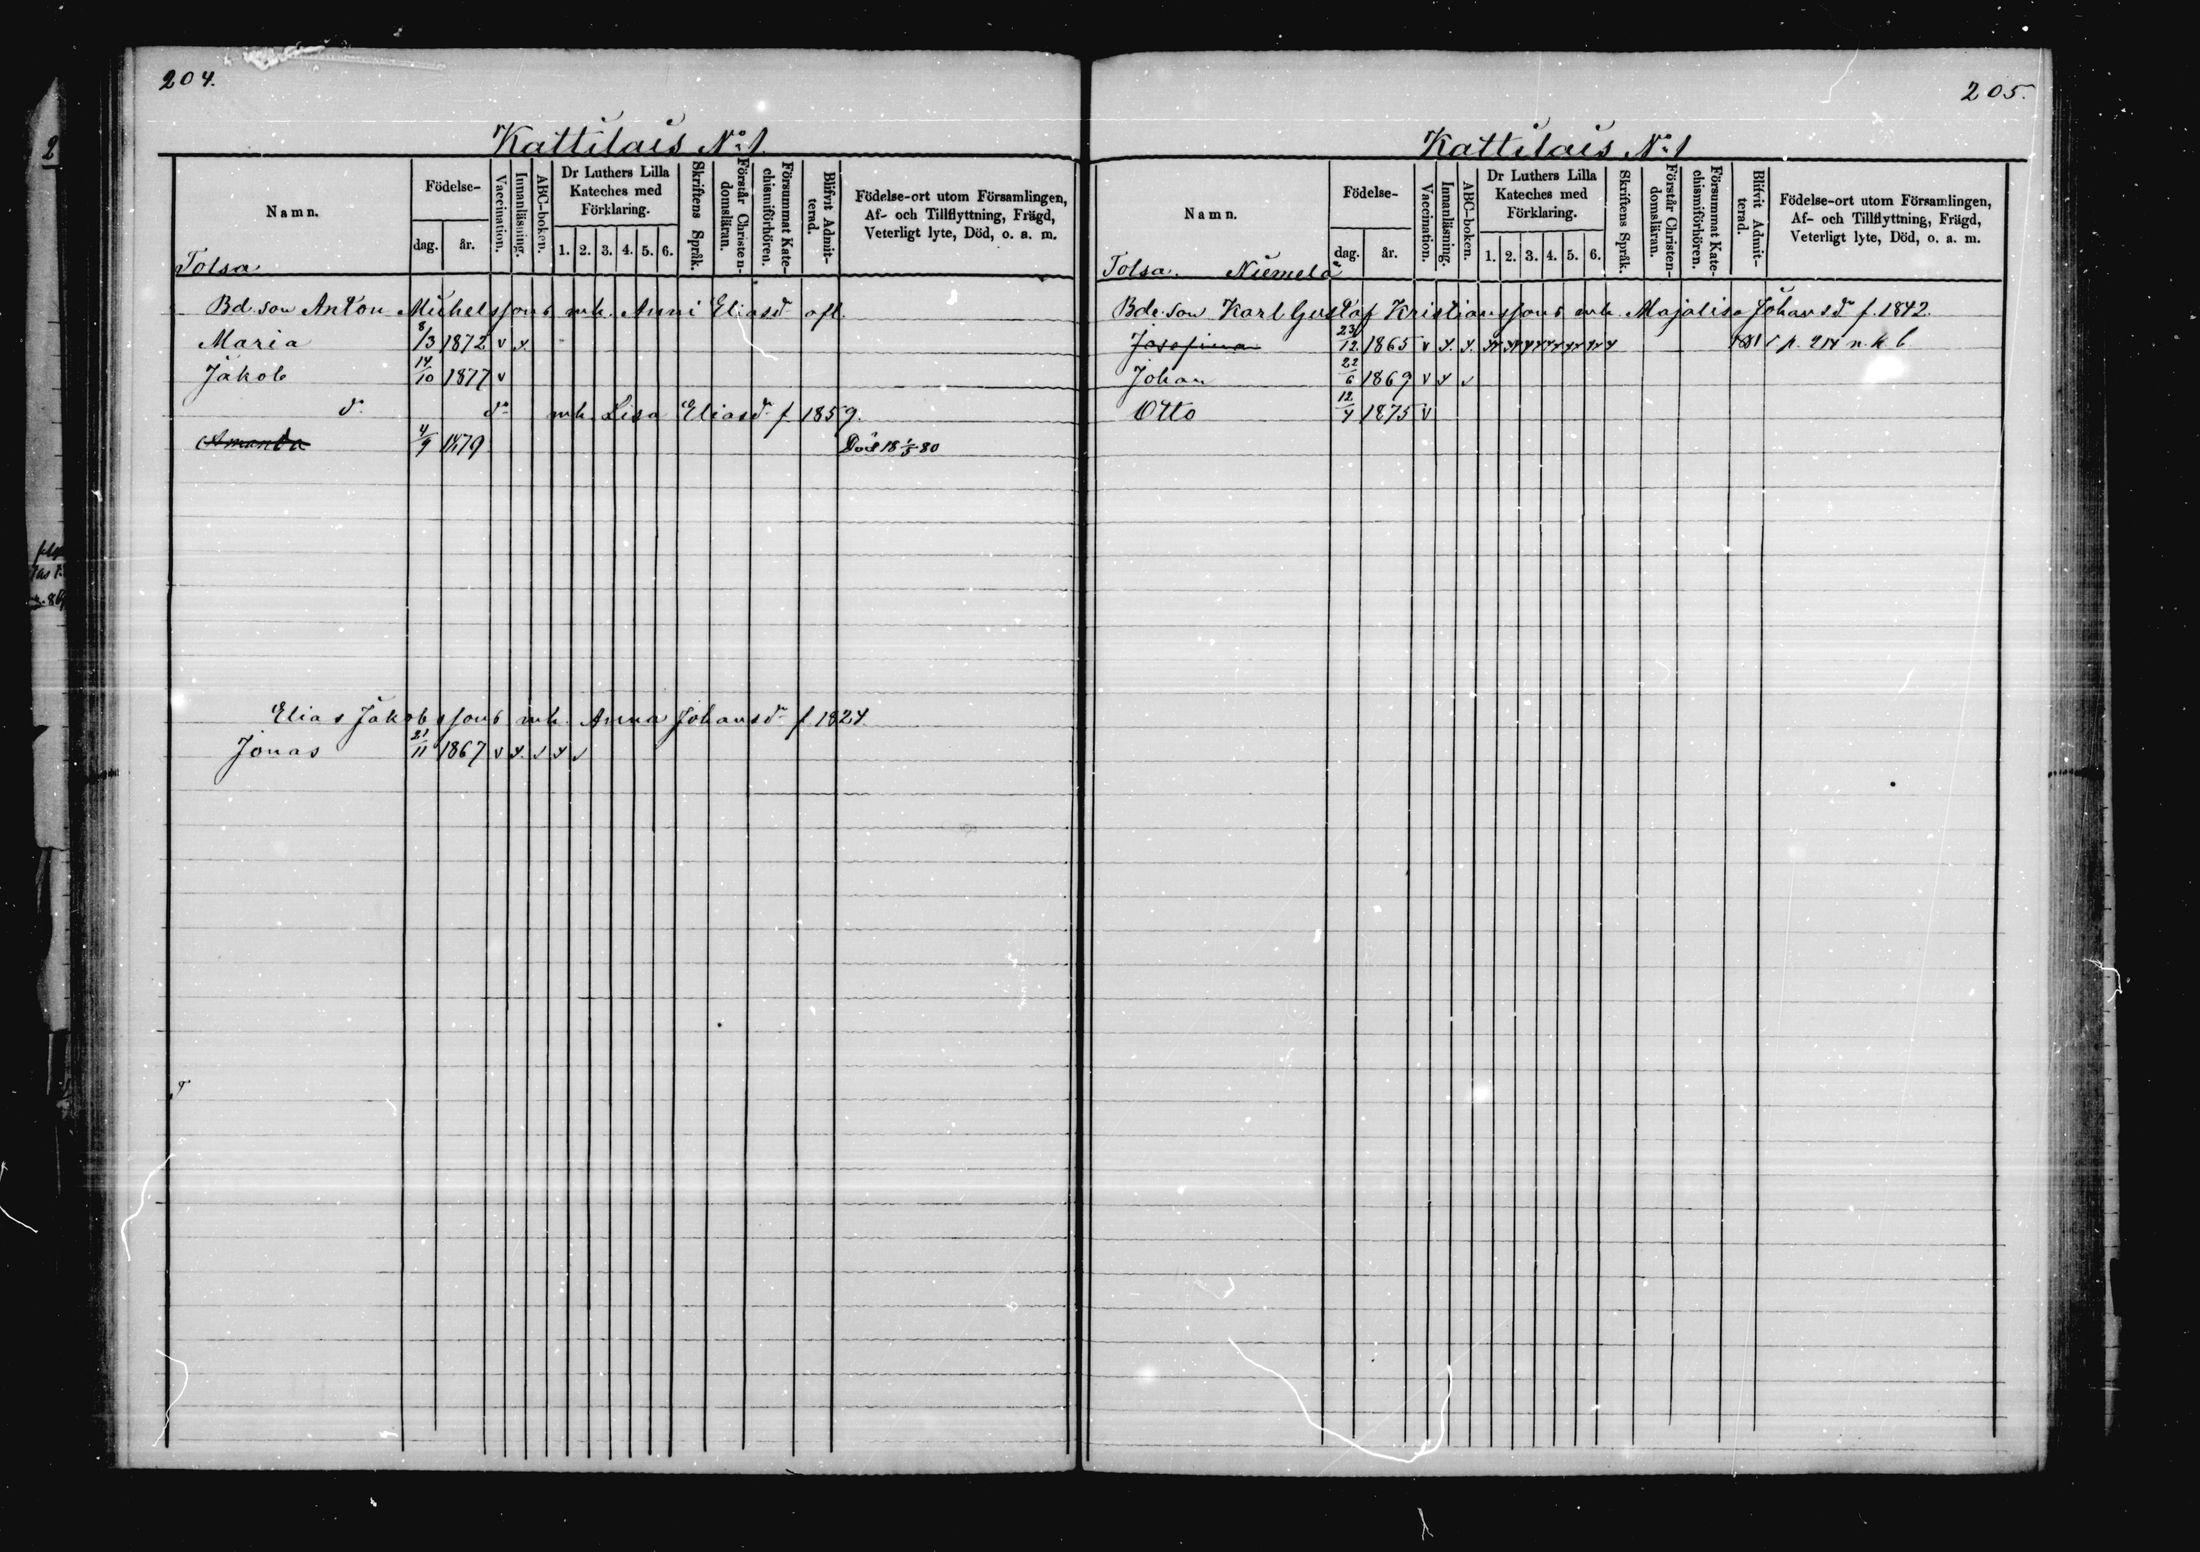 204.
Kattilais No 1
Namn.
Födelse-
dag.
år.
Vaccination.
Innanläsning.
ABC-boken.
Dr Luthers Lilla Kateches med Förklaring.
1. 2. 3. 4. 5. 6.
Skriftens Språk.
Förstår Christendomsläran.
Försummat Katechismiförhören.
Blifvit Admitterad.
Födelse-ort utom Församlingen,
Af- och Tillflyttning, Frägd,
Veterligt lyte, Död, o. a. m.
Tolsa
Bd. son Anton Michelssons enk. Anni Eliasd:r afl.
Maria 8/3 1872 v x.
Jakob 14/10 1877 v
d:o d:o enk. Lisa Eliasd:r f 1859.
Amanda 4/9 1879 Död 18 1/5 80
Elias Jakobssons enk. Anna Johansd:r f 1824
Jonas 21/11 1867 v x. v x v
205.
Kattilais No 1
Namn.
Födelse-
dag.
år.
Vaccination.
Innanläsning.
ABC-boken.
Dr Luthers Lilla Kateches med Förklaring.
1. 2. 3. 4. 5. 6.
Skriftens Språk.
Förstår Christendomsläran.
Försummat Katechismiförhören.
Blifvit Admitterad.
Födelse-ort utom Församlingen,
Af- och Tillflyttning, Frägd,
Veterligt lyte, Död, o. a. m.
Tolsa. Niemelä
Bde. son Karl Gustaf Kristianssons enk. Majalisa Johansd:r f. 1842.
Josefina 23/12 1865 v x. x. 1881 p. 214 n. k b
Johan 22/6 1869 v x v
Otto 12/4 1875 v